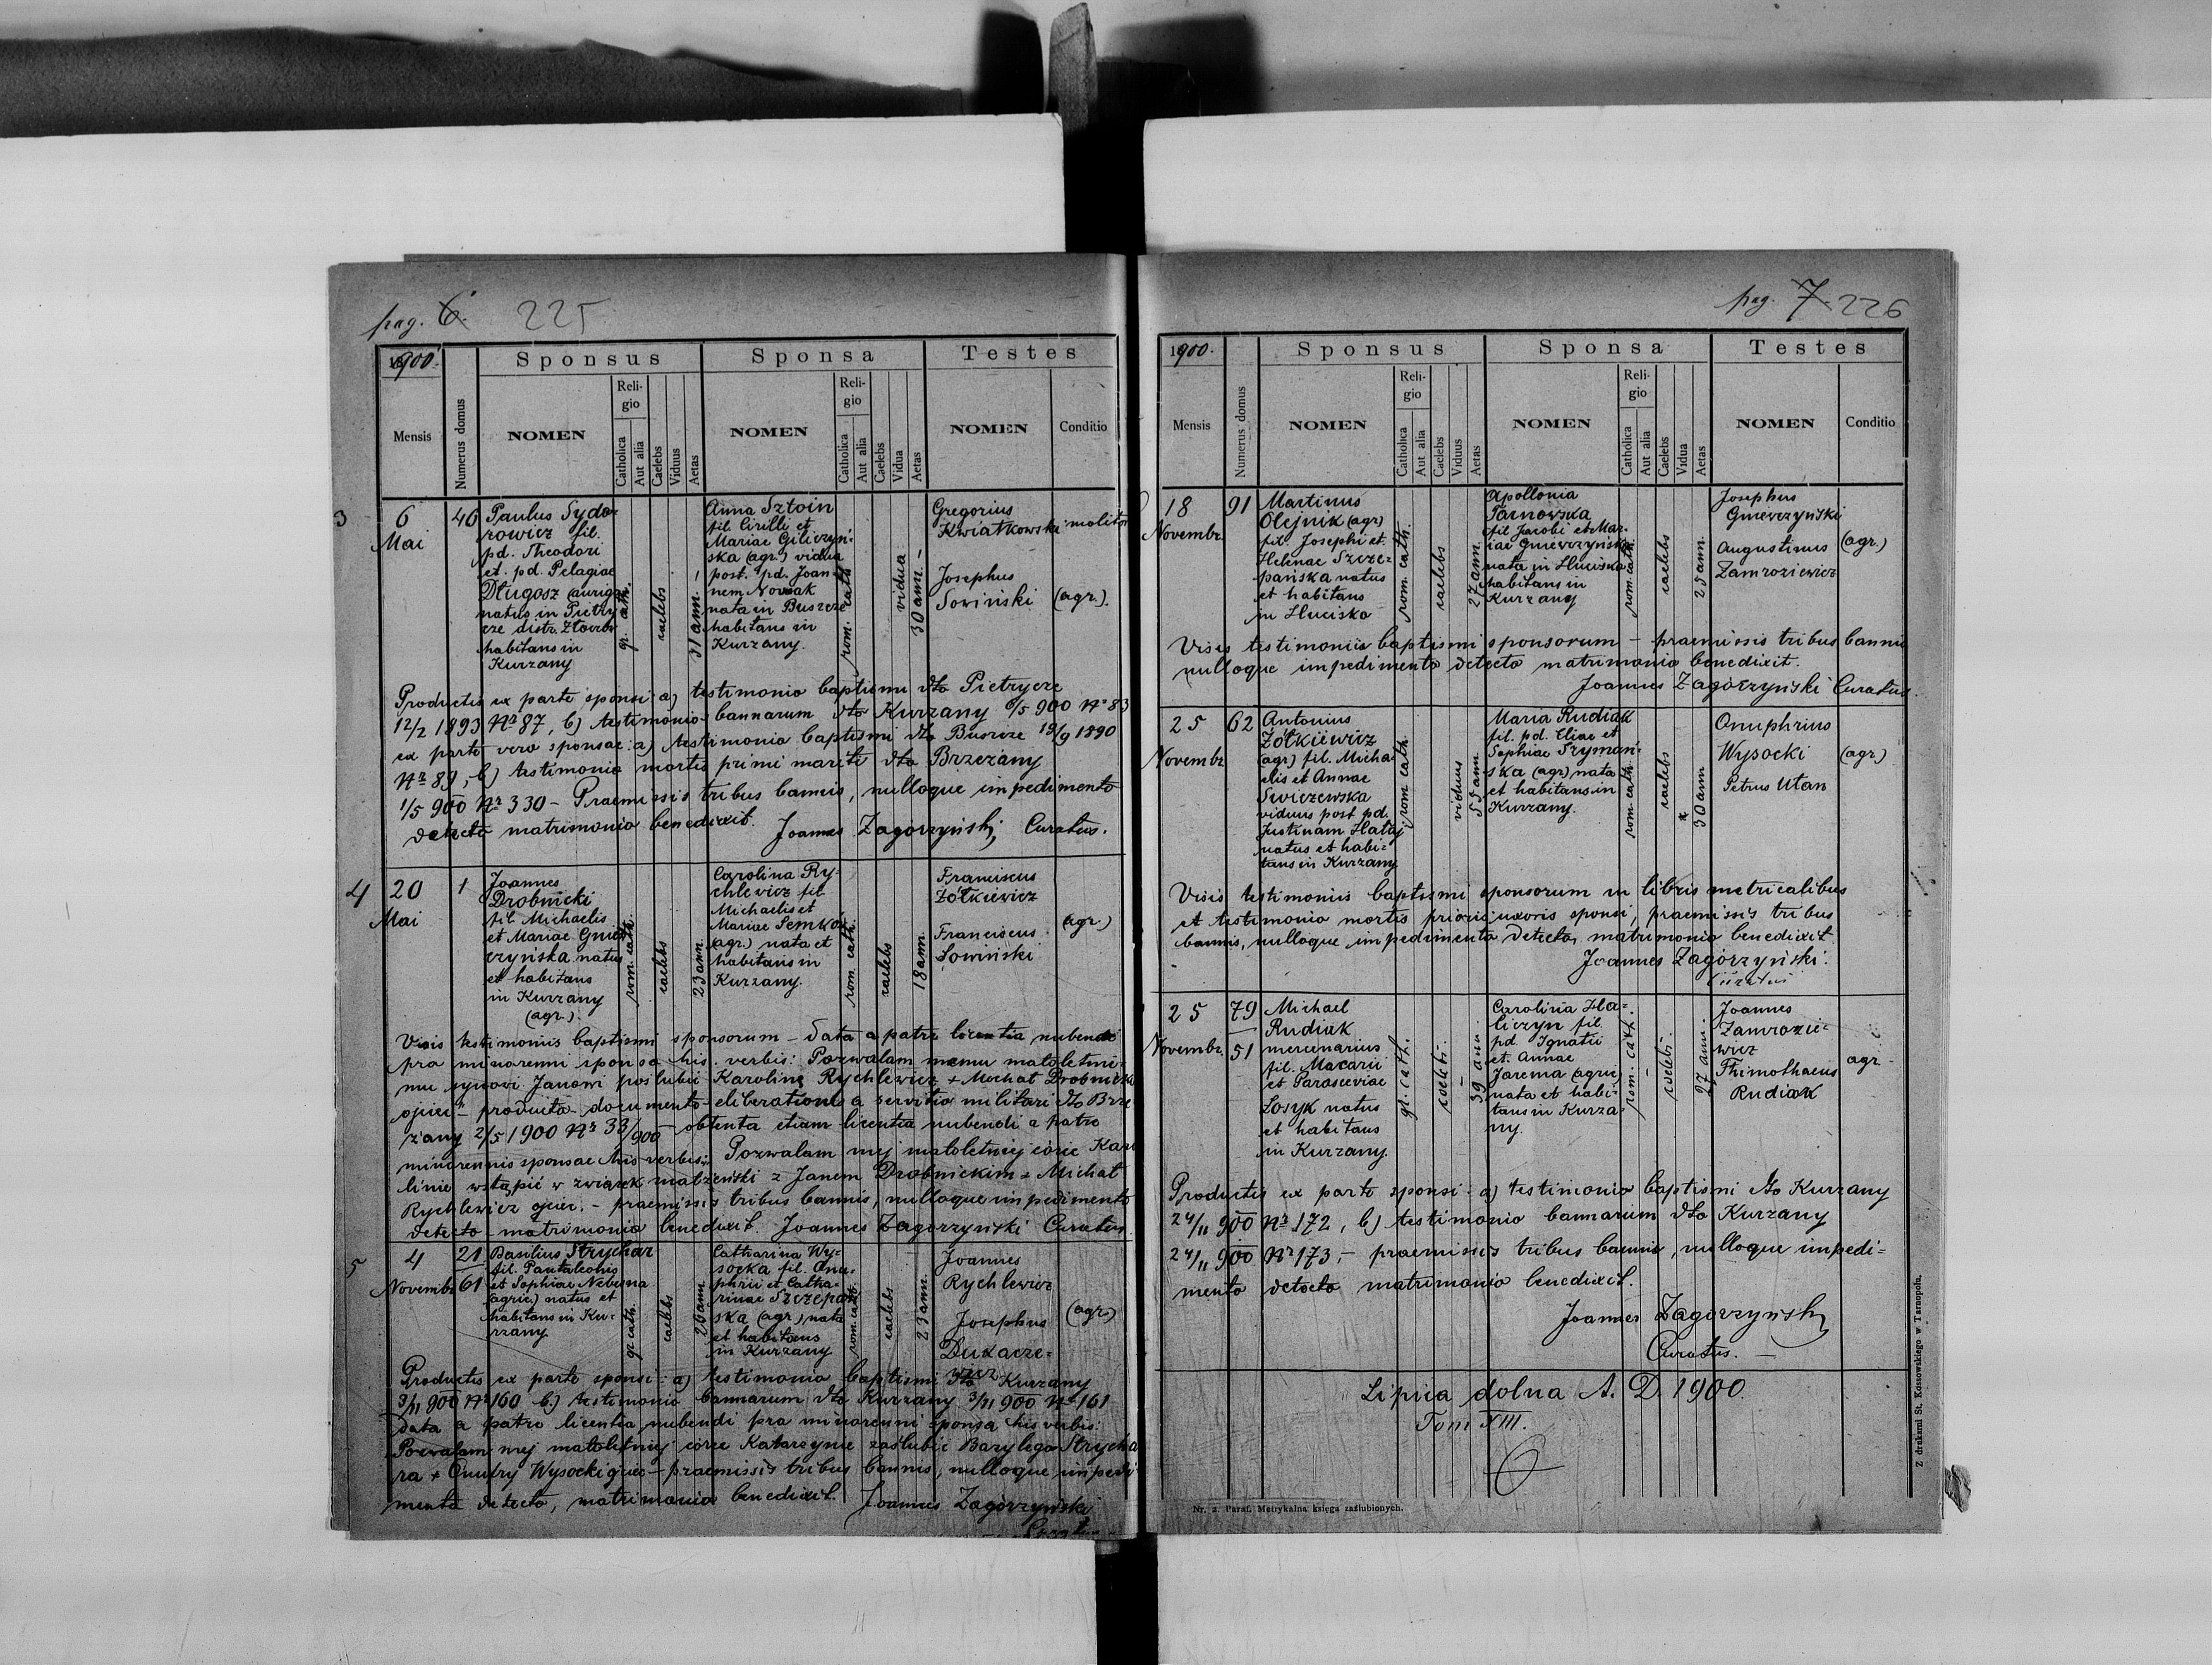 pag. 6. 225
1900.
Sponsus
Sponsa
Testes
Mensis
Numerus domus
NOMEN
Religio
Catholica
Aut alia
Caelebs
Viduus
Aetas
NOMEN
Religio
Catholica
Aut alia
Caelebs
Vidua
Aetas
NOMEN
Conditio
3
6
Mai
46
Paulus Sydo-
rowicz fil.
pd. Theodori
et pd. Pelagiae
Długosz (auriga)
natus in Pietry-
cze distr. Złoczów
habitans in
Kurzany
gr. cath.
caelebs
31 ann.
Anna Sztoin
fil. Cirilli et
Mariae Giliczyń-
ska (agr.) vidua
post. pd. Joan-
nem Nowak
nata in Buszcze
habitans in
Kurzany.
rom. cath.
vidua
30 ann.
Gregorius
Kwiatkowski molitor
Josephus
Sowiński (agr.).
Productis ex parte sponsi a) testimonio baptismi dto Pietrycze
12/2 1893 Nr 87, b) testimonio bannorum dto Kurzany 6/5 900 Nr 83
ex parte vero sponsae: a) testimonio baptismi dto Buszcze 13/9 1890
Nr 89, b) testimonio mortis primi mariti dto Brzeżany
1/5 900 Nr 330 - Praemissis tribus bannis, nulloque impedimento
detecto matrimonio benedixit. Joannes Zagórzyński, Curatus.
4
20
Mai
1
Joannes
Drobnicki
fil. Michaelis
et Mariae Gnie-
czyńska natus
et habitans
in Kurzany
(agr.).
rom. cath.
caelebs
23 ann.
Carolina Ry-
chlewicz fil.
Michaelis et
Mariae Semków
(agr.) nata et
habitans in
Kurzany.
rom. cath.
caelebs
18 ann.
Franciscus
Żółkiewicz
Franciscus
Sowiński
(agr.)
Visis testimoniis baptismi sponsorum - data a patre licentia nubendi
pro minorenni sponso his verbis: Pozwalam memu małoletnie-
mu synowi Janowi poślubić Karolinę Rychlewicz + Michał Drobnicki
ojciec - producto documento eliberationis a servitio militari dto Brze-
żany 2/5 1900 Nr 33/900 - obtenta etiam licentia nubendi a patre
minorennis sponsae his verbis: Pozwalam mej małoletniej córce Karo-
linie wstąpić w związek małżeński z Janem Drobnickim + Michał
Rychlewicz ojciec. - praemissis tribus bannis, nulloque impedimento
detecto - matrimonio benedixit. Joannes Zagórzyński Curatus.
5
4
Novembr.
21
61
Basilius Strychar
fil. Pantaleonis
et Sophiae Nebesna
(agric) natus et
habitans in Ku-
rzany
gr. cath.
caelebs
26 ann.
Catharina Wy-
socka fil. Onu-
phrii et Catha-
rinae Szczepań-
ska (agr.) nata
et habitans
in Kurzany
rom. cath.
caelebs
23 ann.
Joannes
Rychlewicz
Josephus
Dukacze-
wicz
(agr)
Productis ex parte sponsi: a) testimonio baptismi dto Kurzany
3/11 900 Nr 160 b.) testimonio bannorum dto Kurzany 3/11 900 Nr 161
data a patre licentia nubendi pro minorenni sponsa his verbis:
Pozwalam mej małoletniej córce Katarzynie zaślubić Bazylego Strycha-
ra + Onufry Wysocki ojciec - praemissis tribus bannis, nulloque impedi-
mento detecto, matrimonio benedixit. Joannes Zagórzyński
pag. 7. 226
1900.
Sponsus
Sponsa
Testes
Mensis
Numerus domus
NOMEN
Religio
Catholica
Aut alia
Caelebs
Viduus
Aetas
NOMEN
Religio
Catholica
Aut alia
Caelebs
Vidua
Aetas
NOMEN
Conditio
18
Novembr.
91
Martinus
Olejnik (agr)
fil. Josephi et
Helenae Szcze-
pańska natus
et habitans
in Huciska
rom. cath.
caelebs
27 ann.
Apollonia
Tarnowska
fil. Jacobi et Mar-
iae Gnieczyńska
nata in Huciska
habitans in
Kurzany
rom. cath.
caelebs
25 ann.
Josephus
Gnieczyński
Augustinus
Zamroziewicz
(agr.)
Visis testimoniis baptismi sponsorum - praemissis tribus bannis
nulloque impedimento detecto matrimonio benedixit.
Joannes Zagórzyński Curatus.
25
Novembr
62
Antonius
Żółkiewicz
(agr) fil. Micha-
elis et Annae
Swiczewska
viduus post pd.
Justinam Hataj
natus et habi-
tans in Kurzany
rom cath.
viduus
55 ann.
Maria Rudiak
fil. pd. Eliae et
Sophiae Szymań-
ska (agr) nata
et habitans in
Kurzany.
rom cath.
caelebs
30 ann
Onuphrius
Wysocki
Petrus Utan
(agr)
Visis testimoniis baptismi sponsorum in libris metricalibus
et testimonio mortis prioris uxoris sponsi, praemissis tribus
bannis, nulloque impedimento detecto, matrimonio benedixit.
Joannes Zagórzyński.
Curatus
25
Novembr.
79
51
Michael
Rudiak
mercenarius
fil. Macarii
et Parasceviae
Łosyk natus
et habitans
in Kurzany.
gr. cath.
caelebs
39 ann.
Carolina Ha-
liczyn fil.
pd. Ignatii
et Annae
Jarema (agric)
nata et habi-
tans in Kurza-
ny.
rom. cath.
caelebs
27 ann.
Joannes
Zamrozie-
wicz
Thimothaeus
Rudiak
agr.
Productis ex parte sponsi: a) testimonio baptismi dto Kurzany
24/11 900 Nr 172, b) testimonio bannorum dto Kurzany
24/11 900 Nr 173, - praemissis tribus bannis, nulloque impedi-
mento detecto matrimonio benedixit.
Joannes Zagórzyński
Curatus. -
Lipica dolna A. D. 1900
Tom XIII.
Nr. 2. Paraf. Metrykalna księga zaślubionych.
Z drukarni St. Kossowskiego w Tarnopolu.